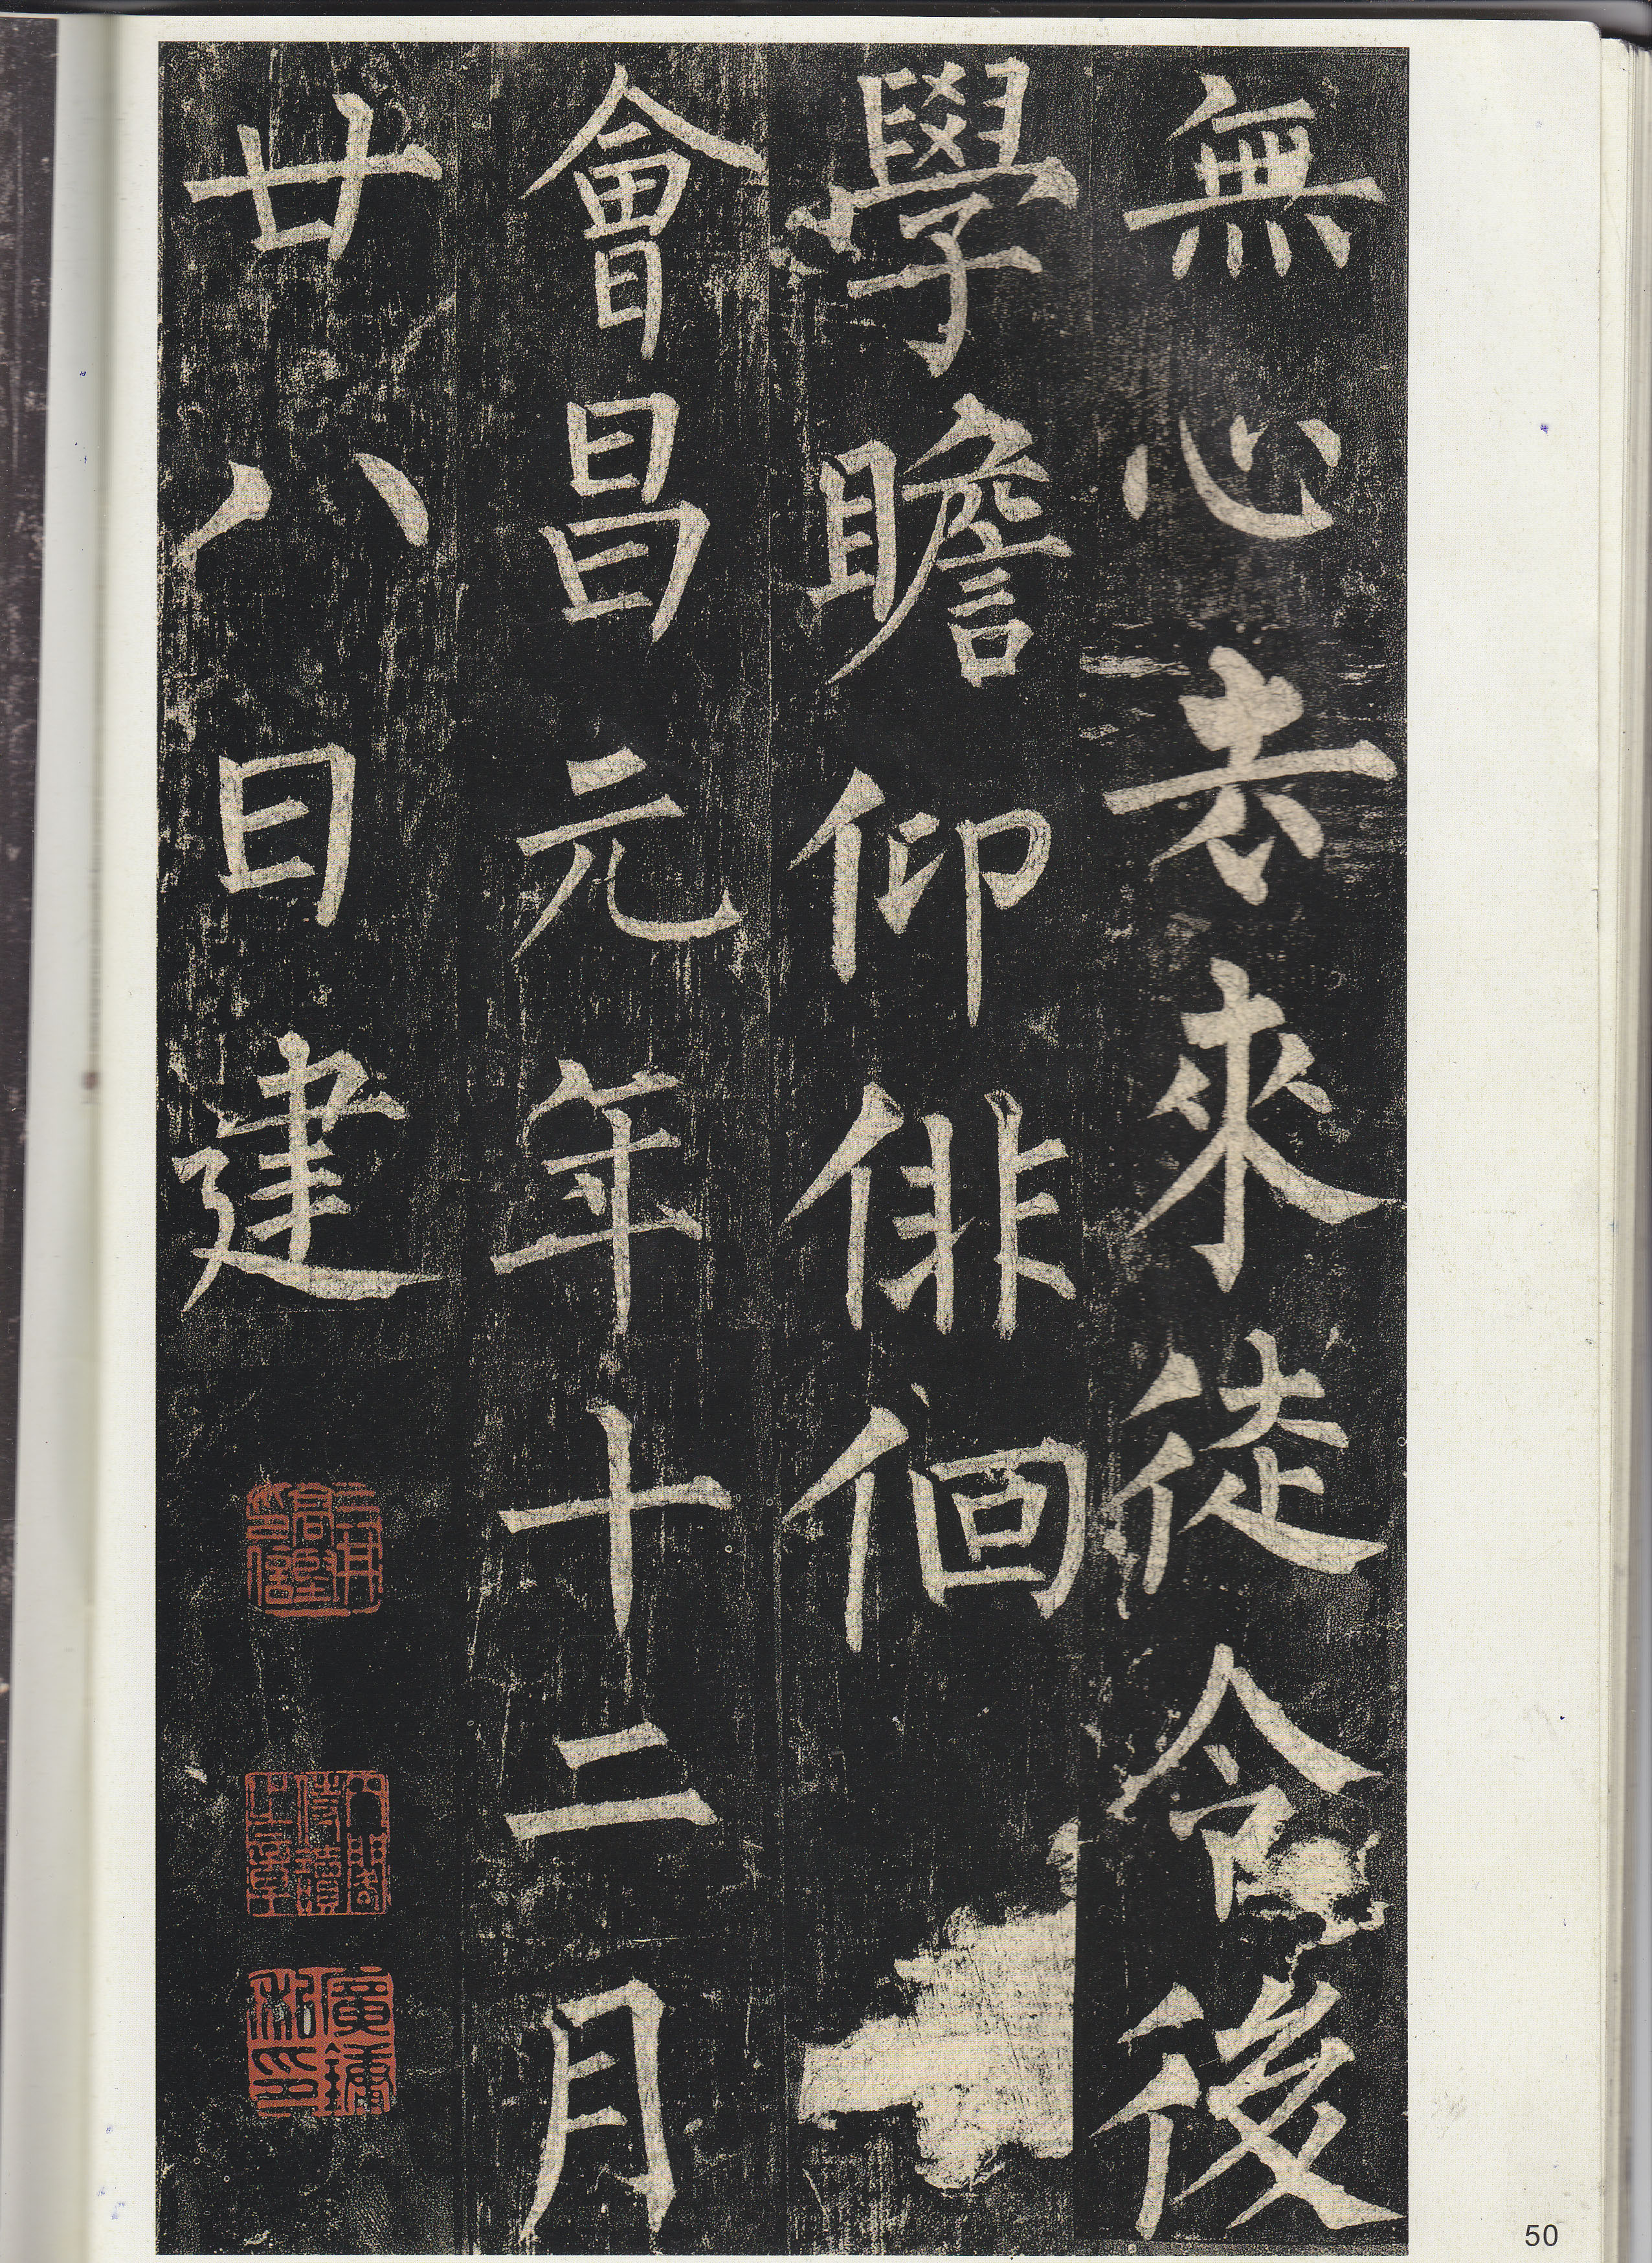 無心去來徒令後
學瞻仰俳佪
會昌元年十二月
廿八日建
50